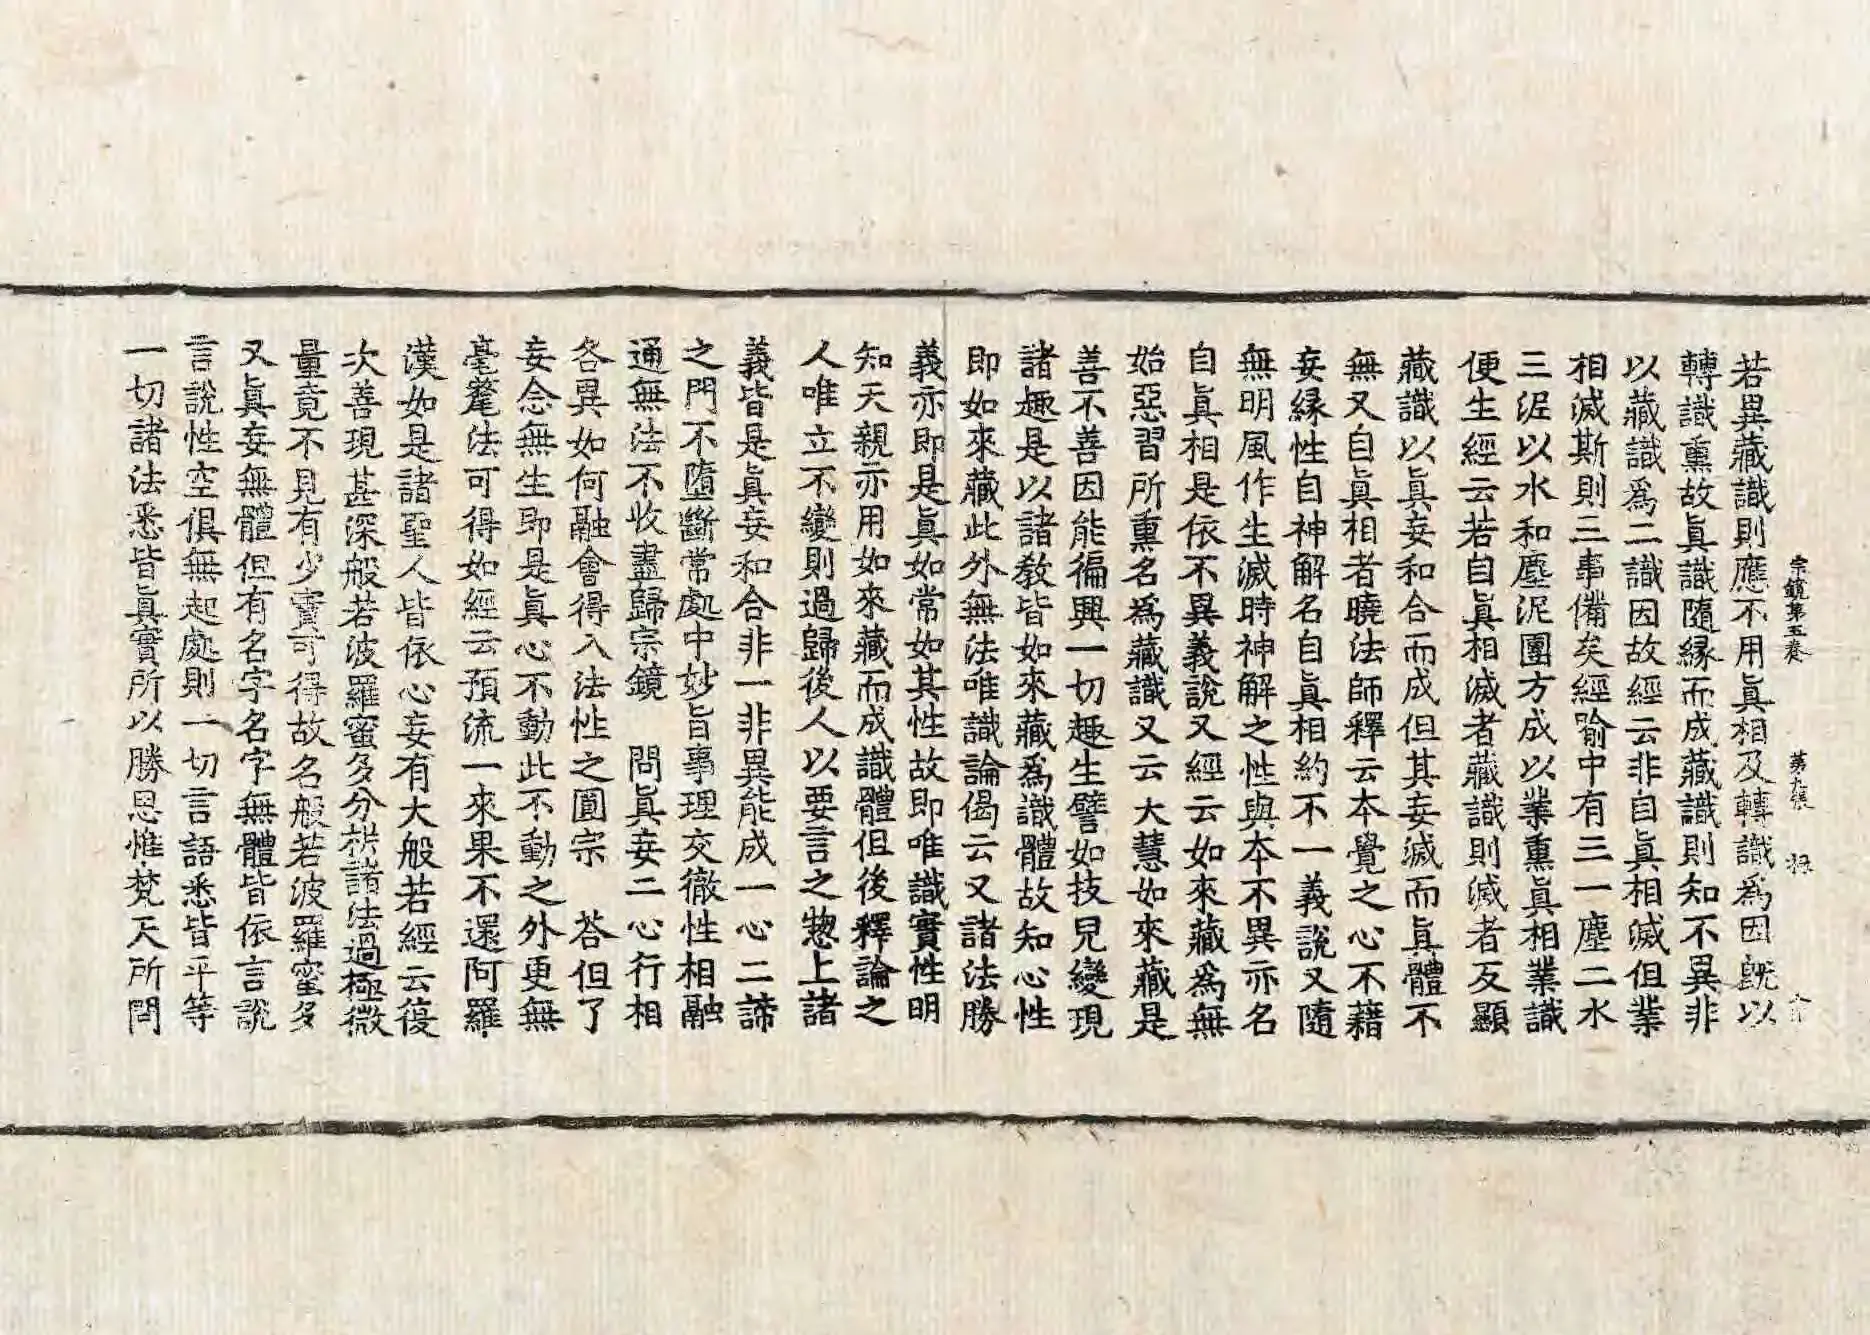 宗鏡第五卷 第九張 祿
若異藏識則應不用眞相及轉識爲因旣以
轉識熏故眞識隨縁而成藏識則知不異非
以藏識爲二識因故經云非自眞相滅但業
相滅斯則三事備矣經喻中有三一塵二水
三泥以水和塵泥團方成以業熏眞相業識
便生經云若自眞相滅者藏識則滅者反顯
藏識以眞妄和合而成但其妄滅而眞體不
無又自眞相者曉法師釋云本覺之心不藉
妄縁性自神解名自眞相約不一義說又隨
無明風作生滅時神解之性與本不異亦名
自眞相是依不異義說又經云如來藏爲無
始惡習所熏名爲藏識又云大慧如來藏是
善不善因能徧興一切趣生譬如技兒變現
諸趣是以諸教皆如來藏爲識體故知心性
即如來藏此外無法唯識論偈云又諸法勝
義亦即是眞如常如其性故即唯識實性明
知天親亦用如來藏而成識體但後釋論之
人唯立不變則過歸後人以要言之惣上諸
義皆是眞妄和合非一非異能成一心二諦
之門不墮斷常處中妙旨事理交徹性相融
通無法不收盡歸宗鏡　問眞妄二心行相
各異如何融會得入法性之圓宗　荅但了
妄念無生即是眞心不動此不動之外更無
毫氂法可得如經云預流一來果不還阿羅
漢如是諸聖人皆依心妄有大般若經云復
次善現甚深般若波羅蜜多分析諸法過極微
量竟不見有少實可得故名般若波羅蜜多
又眞妄無體但有名字名字無體皆依言說
言說性空俱無起處則一切言語悉皆平等
一切諸法悉皆眞實所以勝思惟梵天所問